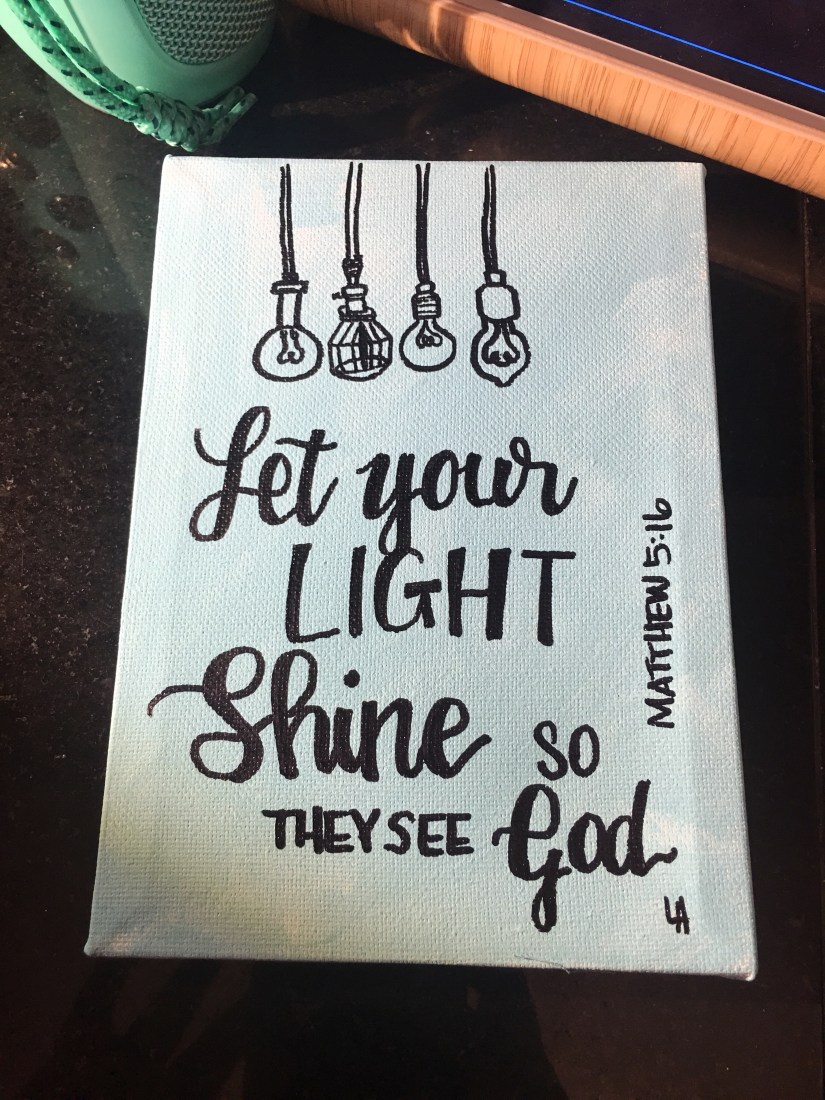 Let your
LIGHT
Shine so
THEY SEE God
MATTHEW 5:16
LA